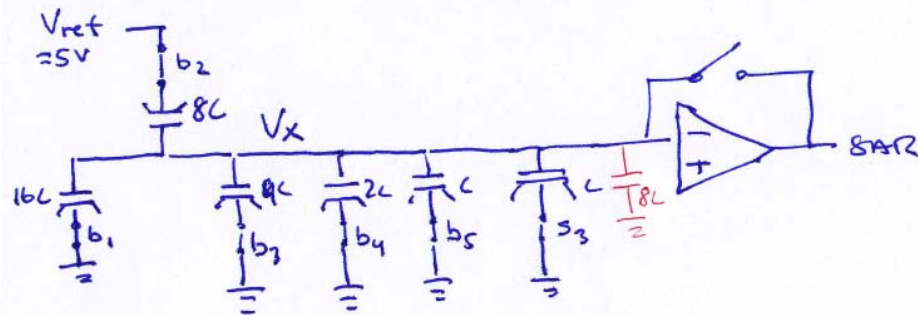 Vref
=5V
b2
8C
Vx
16C
b1
4C
b3
2C
b4
C
b5
C
s3
8C
−
+
SAR